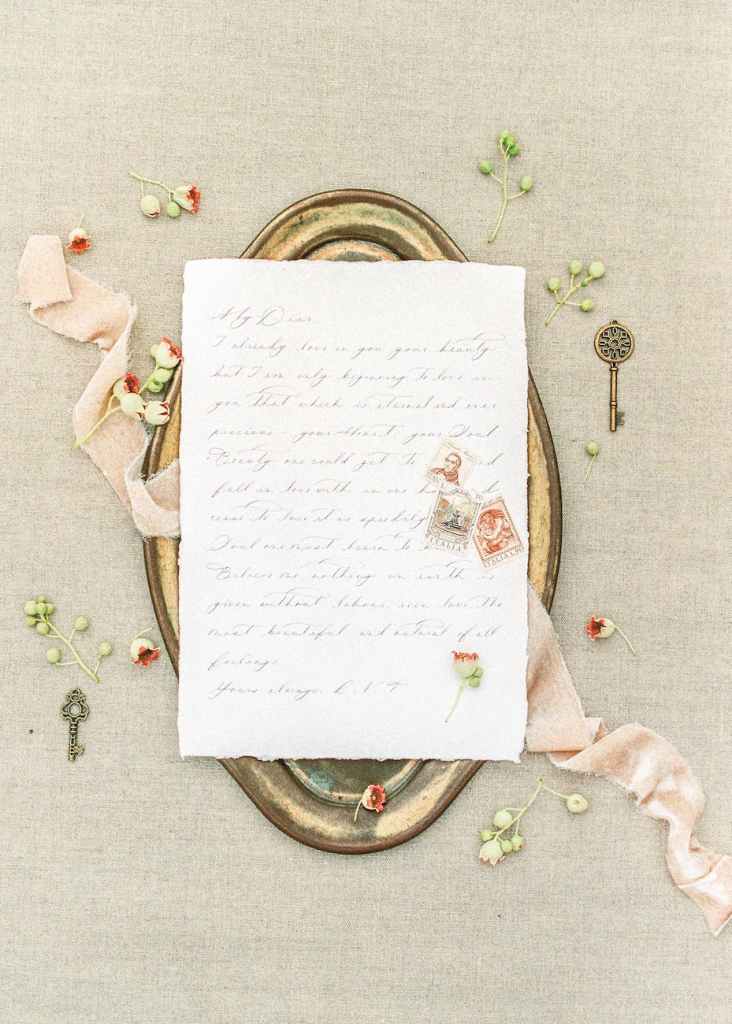 My Dear,
I already love in you your beauty
but I am only beginning to love in
you that which is eternal and ever
precious - your heart, your Soul
Beauty one could get to
fall in love with in one
cease to love it as speedily
Soul one must learn to
Believe me nothing on earth is
given without labour, even love, the
most beautiful and natural of all
feelings.
Yours always, L.N.T
ITALIA
ITALIA